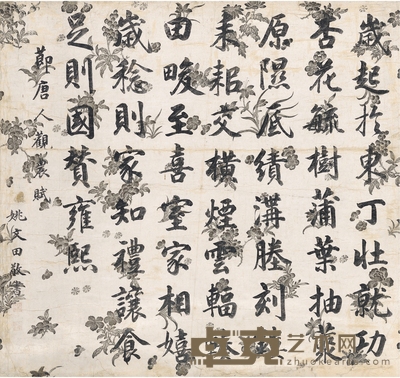 歲起於東丁壯就功
杏花毓樹蒲葉抽叢
原隰底績溝塍刻
耒耜交橫煙雲輻
田畯至喜室家相嬉
歲稔則家知禮讓食
足則國贊雍熙
節唐人觀農賦
姚文田敬書
卓克艺术网